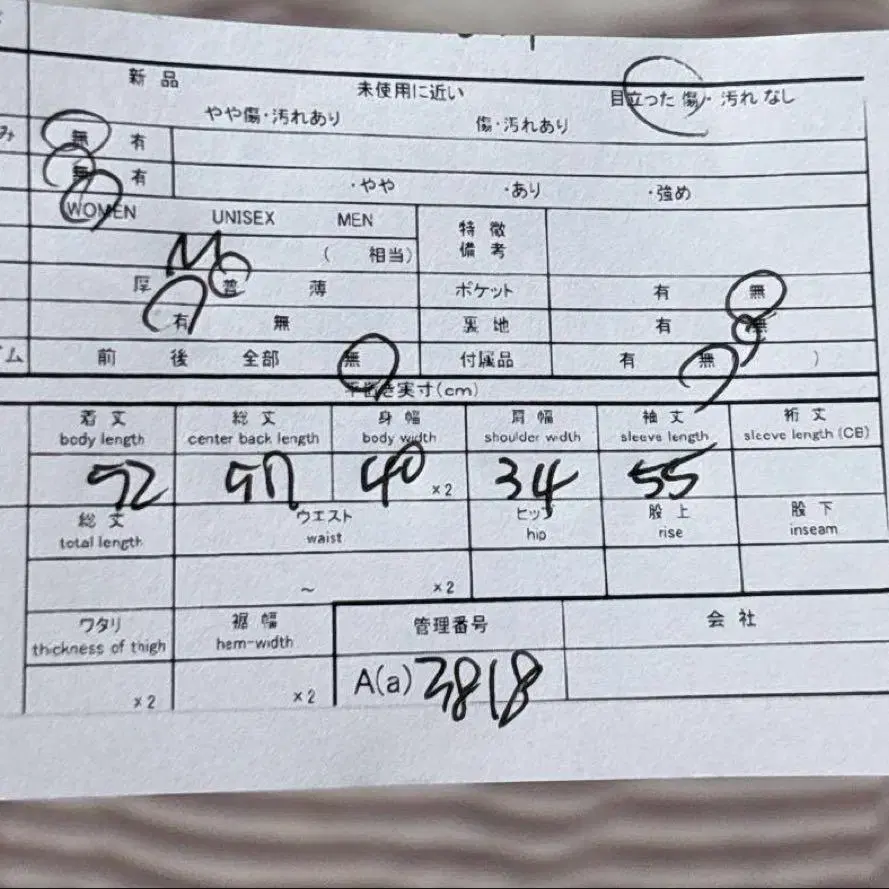 新品 未使用に近い 目立った傷・汚れなし
やや傷・汚れあり 傷・汚れあり
み 無 有
無 有 ・やや ・あり ・強め
WOMEN UNISEX MEN 特徴
備考
M ( 相当)
厚 普 薄 ポケット 有 無
有 無 裏地 有 無
ム 前 後 全部 無 付属品 有 無 )
平置き実寸(cm)
着丈 総丈 身幅 肩幅 袖丈 裄丈
body length center back length body width shoulder width sleeve length sleeve length (CB)
52 57 40 ×2 34 55
総丈 ウエスト ヒップ 股上 股下
total length waist hip rise inseam
~ ×2
ワタリ 裾幅 管理番号 会社
thickness of thigh hem-width
×2 ×2 A(a) 3818